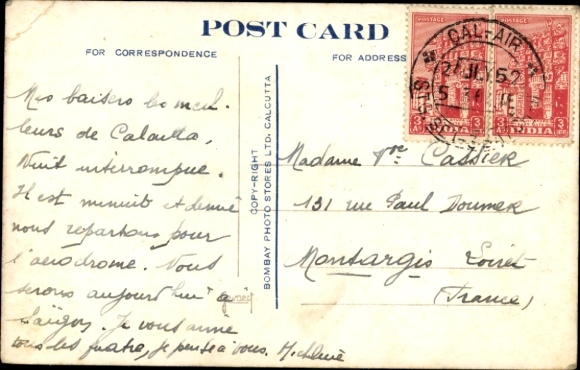 POST CARD
FOR CORRESPONDENCE
FOR ADDRESS
Mes baisers les meil-
leurs de Calcutta.
Nuit interrompue.
Il est minuit et demie
nous repartons pour
l'aérodrome. Vous
serons aujourd'hui à
Saïgon. Je vous aime
tous les quatre, je pense à vous.
COPY-RIGHT
BOMBAY PHOTO STORES LTD. CALCUTTA
POSTAGE
POSTAGE
3 INDIA 3
AS
CAL-AIR
JLY 52
Madame Vve CASSIER
131 rue Paul Doumer
Montargis Loiret
(France)